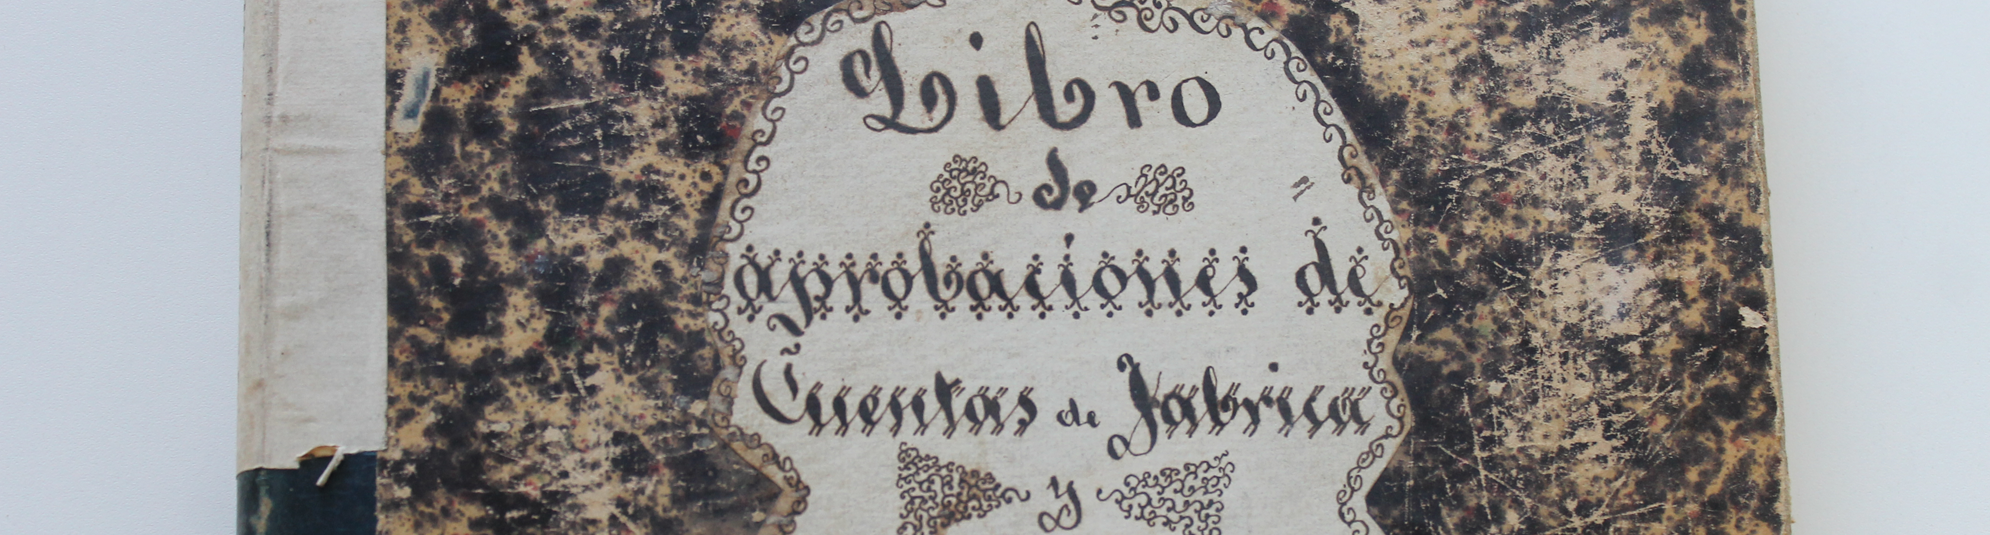 Libro
de
aprobaciones de
Cuentas de Fabrica
y